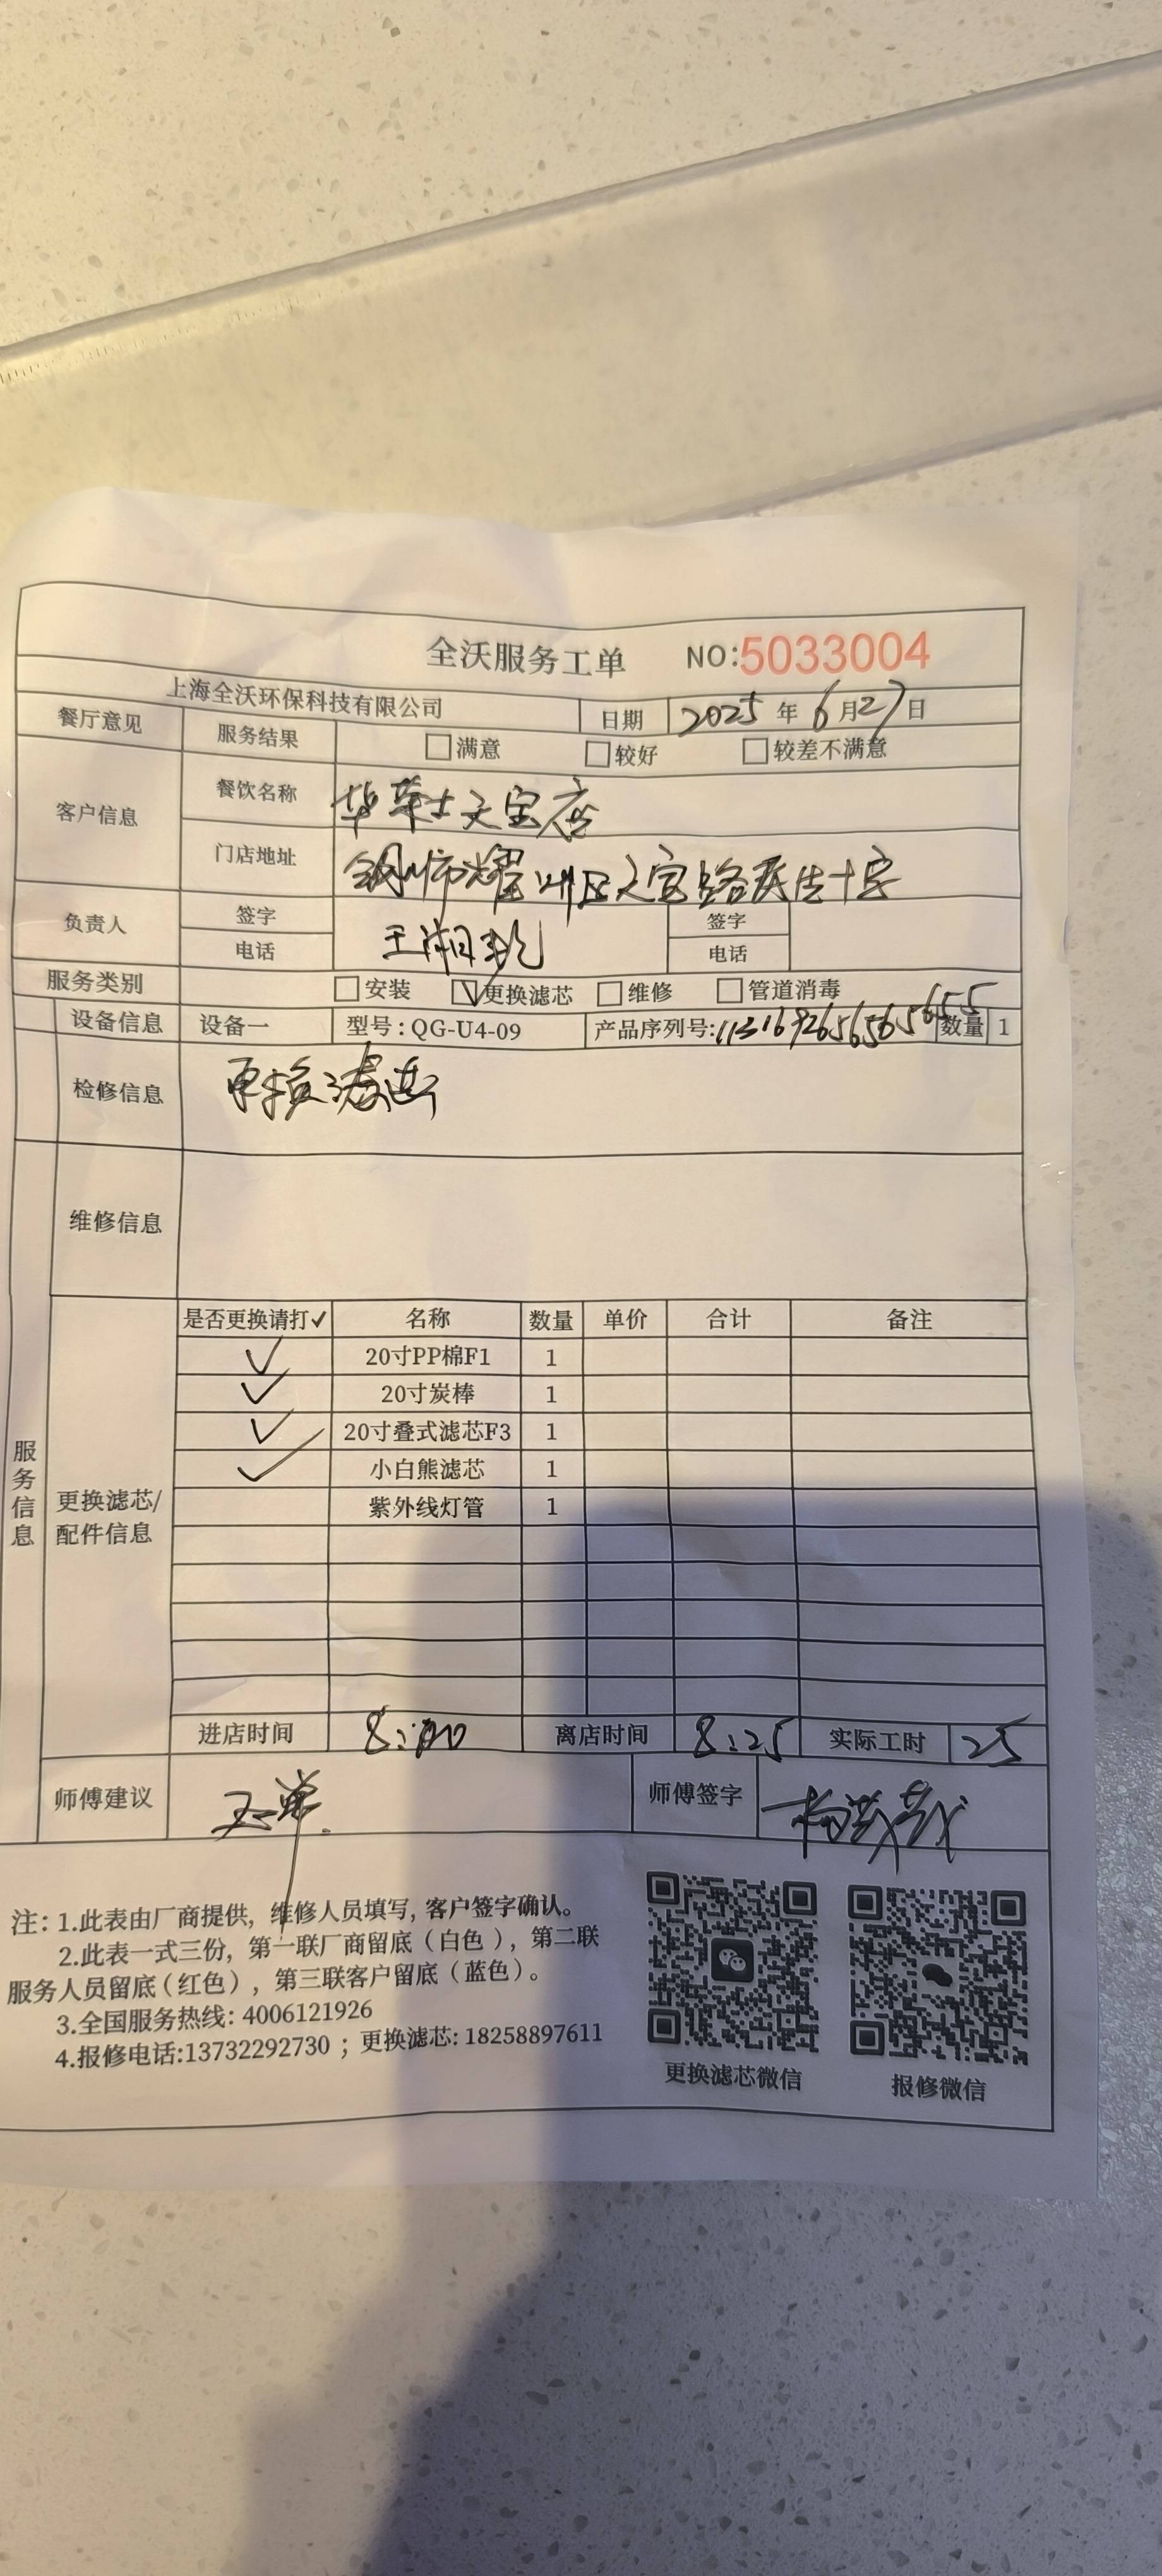 全沃服务工单 NO:5033004
上海全沃环保科技有限公司 日期 2025 年 6 月 27 日
餐厅意见 服务结果 满意 较好 较差不满意
客户信息 餐饮名称 华莱士文宝店
门店地址 铜川市耀州区文宝路民生十字
负责人 签字 签字
电话 电话
服务类别 安装 更换滤芯 维修 管道消毒
设备信息 设备一 型号:QG-U4-09 产品序列号: 数量 1
检修信息 更换滤芯
维修信息
服务信息
更换滤芯/配件信息
是否更换请打✓ 名称 数量 单价 合计 备注
✓ 20寸PP棉F1 1
✓ 20寸炭棒 1
✓ 20寸叠式滤芯F3 1
✓ 小白熊滤芯 1
紫外线灯管 1
进店时间 8:00 离店时间 8:25 实际工时 25
师傅建议 师傅签字
注: 1.此表由厂商提供, 维修人员填写, 客户签字确认。
2.此表一式三份, 第一联厂商留底 (白色), 第二联
服务人员留底 (红色), 第三联客户留底 (蓝色)。
3.全国服务热线: 4006121926
4.报修电话:13732292730 ; 更换滤芯: 18258897611
更换滤芯微信 报修微信